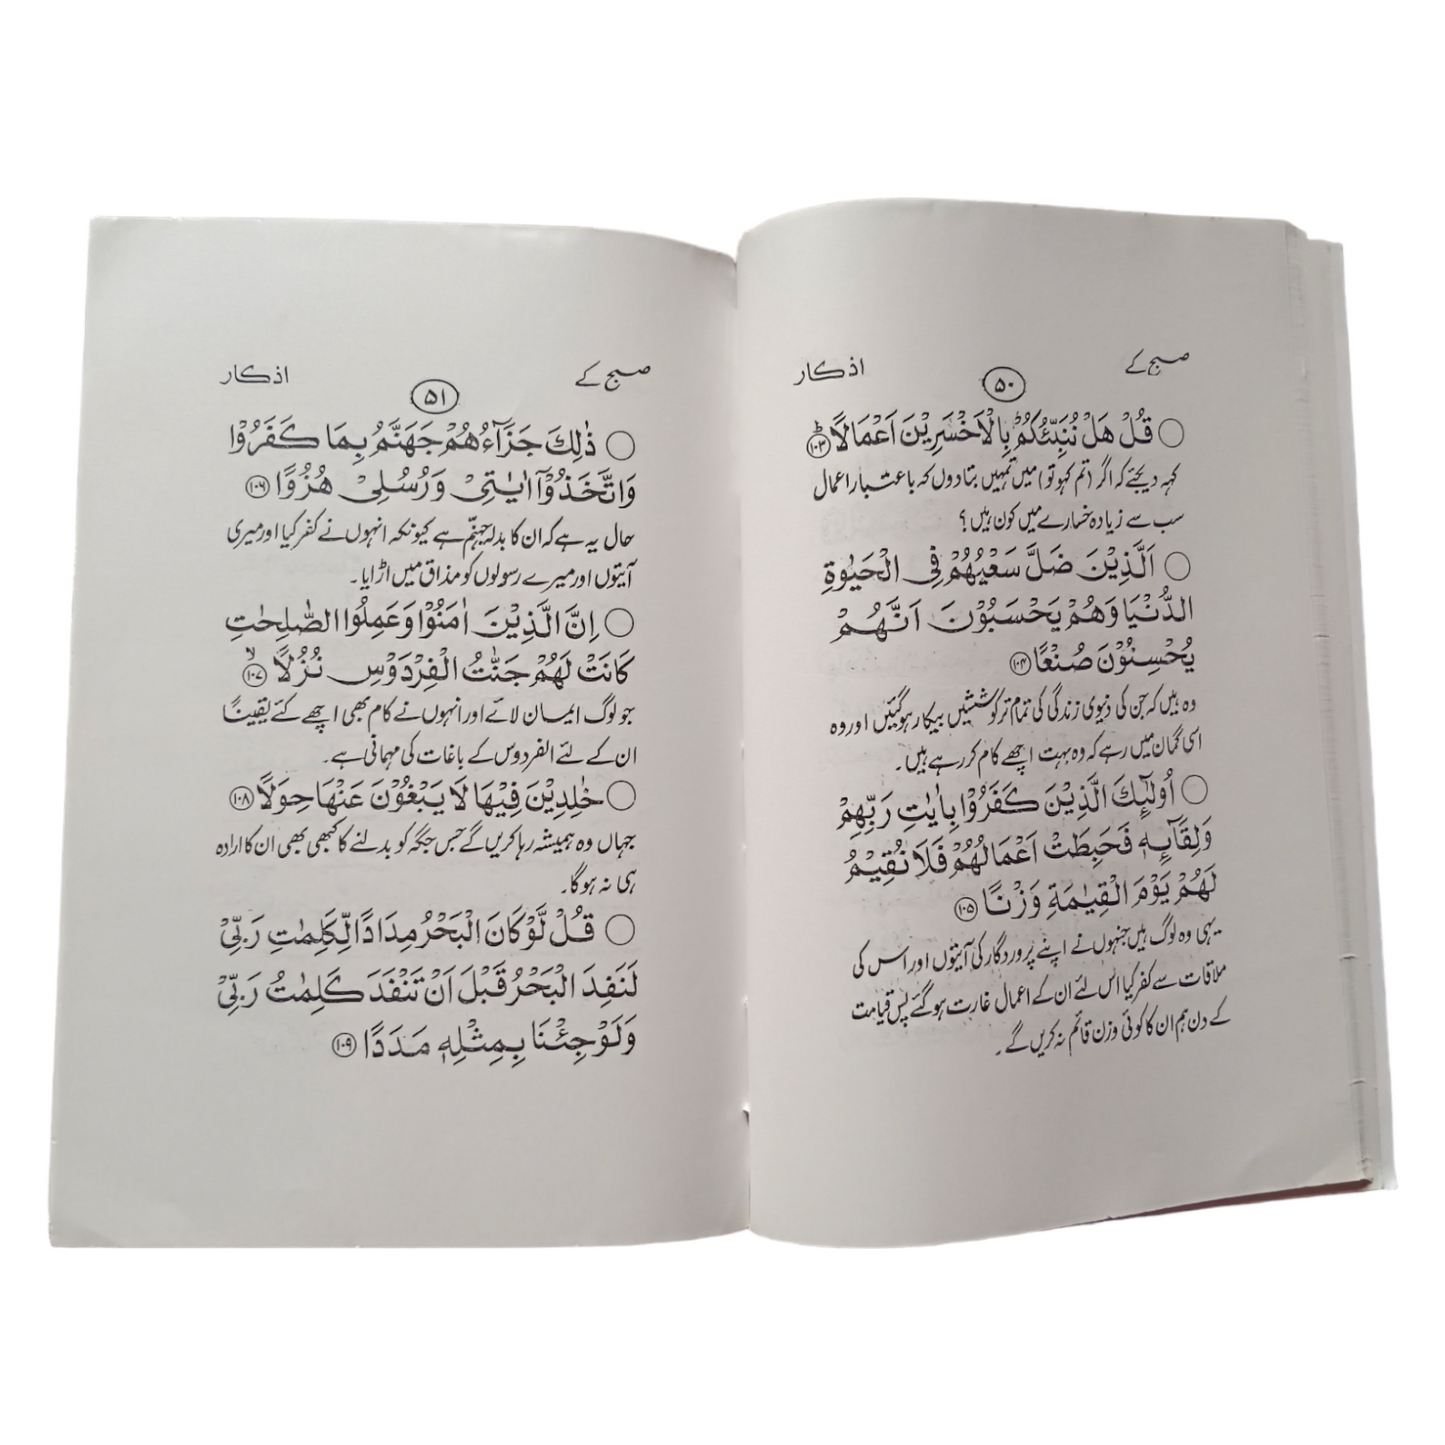 صبح کے
۵۰
اذکار
○ قُلْ هَلْ نُنَبِّئُكُمْ بِالْاَخْسَرِيْنَ اَعْمَالًا ؕ ۱۰۳
کہہ دیجئے کہ اگر (تم کہو تو) میں تمہیں بتا دوں کہ باعتبار اعمال
سب سے زیادہ خسارے میں کون ہیں؟
○ اَلَّذِيْنَ ضَلَّ سَعْيُهُمْ فِي الْحَيٰوةِ
الدُّنْيَا وَهُمْ يَحْسَبُوْنَ اَنَّهُمْ
يُحْسِنُوْنَ صُنْعًا ۱۰۴
وہ ہیں کہ جن کی دنیوی زندگی کی تمام تر کوششیں بیکار ہوگئیں اور وہ
اسی گمان میں رہے کہ وہ بہت اچھے کام کر رہے ہیں۔
○ اُولٰٓئِكَ الَّذِيْنَ كَفَرُوْا بِاٰيٰتِ رَبِّهِمْ
وَلِقَآئِهٖ فَحَبِطَتْ اَعْمَالُهُمْ فَلَا نُقِيْمُ
لَهُمْ يَوْمَ الْقِيٰمَةِ وَزْنًا ۱۰۵
یہی وہ لوگ ہیں جنہوں نے اپنے پروردگار کی آیتوں اور اس کی
ملاقات سے کفر کیا اس لئے ان کے اعمال غارت ہوگئے پس قیامت
کے دن ہم ان کا کوئی وزن قائم نہ کریں گے۔
صبح کے
۵۱
اذکار
○ ذٰلِكَ جَزَآءُهُمْ جَهَنَّمُ بِمَا كَفَرُوْا
وَاتَّخَذُوْٓا اٰيٰتِيْ وَرُسُلِيْ هُزُوًا ۱۰۶
حال یہ ہے کہ ان کا بدلہ جہنم ہے کیونکہ انہوں نے کفر کیا اور میری
آیتوں اور میرے رسولوں کو مذاق میں اڑایا۔
○ اِنَّ الَّذِيْنَ اٰمَنُوْا وَعَمِلُوا الصّٰلِحٰتِ
كَانَتْ لَهُمْ جَنّٰتُ الْفِرْدَوْسِ نُزُلًا ۙ ۱۰۷
جو لوگ ایمان لائے اور انہوں نے کام بھی اچھے کئے یقیناً
ان کے لئے الفردوس کے باغات کی مہمانی ہے۔
○ خٰلِدِيْنَ فِيْهَا لَا يَبْغُوْنَ عَنْهَا حِوَلًا ۱۰۸
جہاں وہ ہمیشہ رہا کریں گے جس جگہ کو بدلنے کا کبھی بھی ان کا ارادہ
ہی نہ ہوگا۔
○ قُلْ لَّوْ كَانَ الْبَحْرُ مِدَادًا لِّكَلِمٰتِ رَبِّيْ
لَنَفِدَ الْبَحْرُ قَبْلَ اَنْ تَنْفَدَ كَلِمٰتُ رَبِّيْ
وَلَوْ جِئْنَا بِمِثْلِهٖ مَدَدًا ۱۰۹